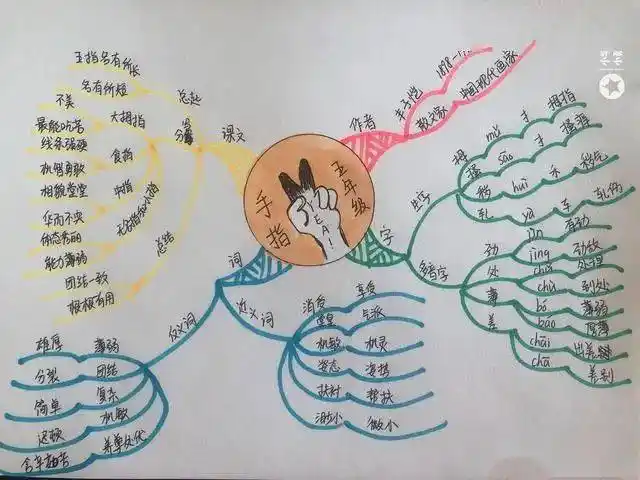 手指
五年级
YEA!
课文
总起
五指各有所长
各有所短
分写
大拇指
不美
最能吃苦
食指
线条强硬
机智勇敢
中指
相貌堂堂
养尊处优
无名指和小指
体态秀丽
能力薄弱
总结
团结一致
根根有用
作者
丰子恺
散文家
中国现代画家
字
生字
拇
mǔ
扌
拇指
搔
sāo
扌
搔痒
秽
huì
禾
秽气
轧
yà
车
轧伤
多音字
劲
jìn
有劲
jìng
劲敌
处
chǔ
处理
chù
到处
薄
bó
薄弱
báo
厚薄
差
chāi
出差
chā
差别
词
近义词
享受
堂皇
气派
机敏
机灵
姿态
姿势
扶衬
帮扶
渺小
微小
反义词
雄厚
薄弱
分裂
团结
简单
复杂
迟顿
机敏
含辛茹苦
养尊处优